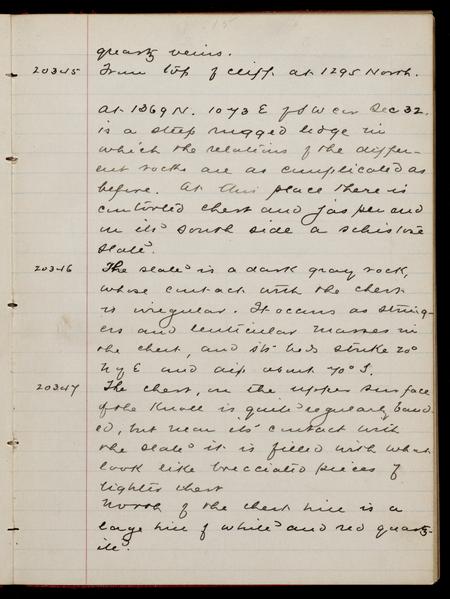 15
quartz veins.
20345 From top of cliff. at 1295 North.
At 1369 N. 1073 E of SW cor Sec 32.
is a steep rugged ledge in
which the relations of the differ-
ent rocks are as complicated as
before. At this place there is
contorted chert and jasper and
on its south side a schistose
slate.
20346 The slate is a dark gray rock,
whose contact with the chert
is irregular. It occurs as string-
ers and lenticular masses in
the chert, and its beds strike 20°
N of E and dip about 70° S.
20347 The chert, on the upper surface
of the knoll is quite regularly band-
ed, but near its contact with
the slate it is filled with what
look like brecciated pieces of
lighter chert
North of the chert hill is a
large hill of white and red quartz-
ite.